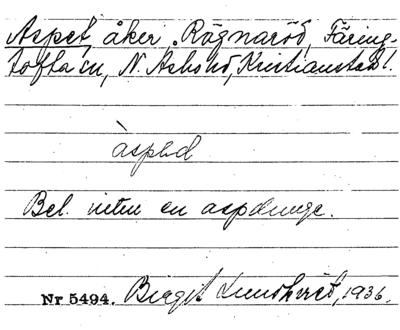 Aspet, åker, Rögnaröd, Färing-
tofta sn, N. Åsbo hd, Kristianstad l.
àspəd
Bel. intill en aspdunge.
Nr 5494. Birgit Lundkvist, 1936.